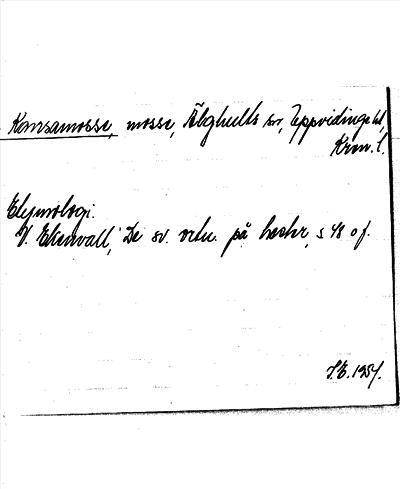 Konsamosse, mosse, Älghults sn, Uppvidinge hd,
Kron. l.
Etymologi.
V. Ekenvall, De sv. ortn. på hestr, s 48 o f.
V.E. 1957.